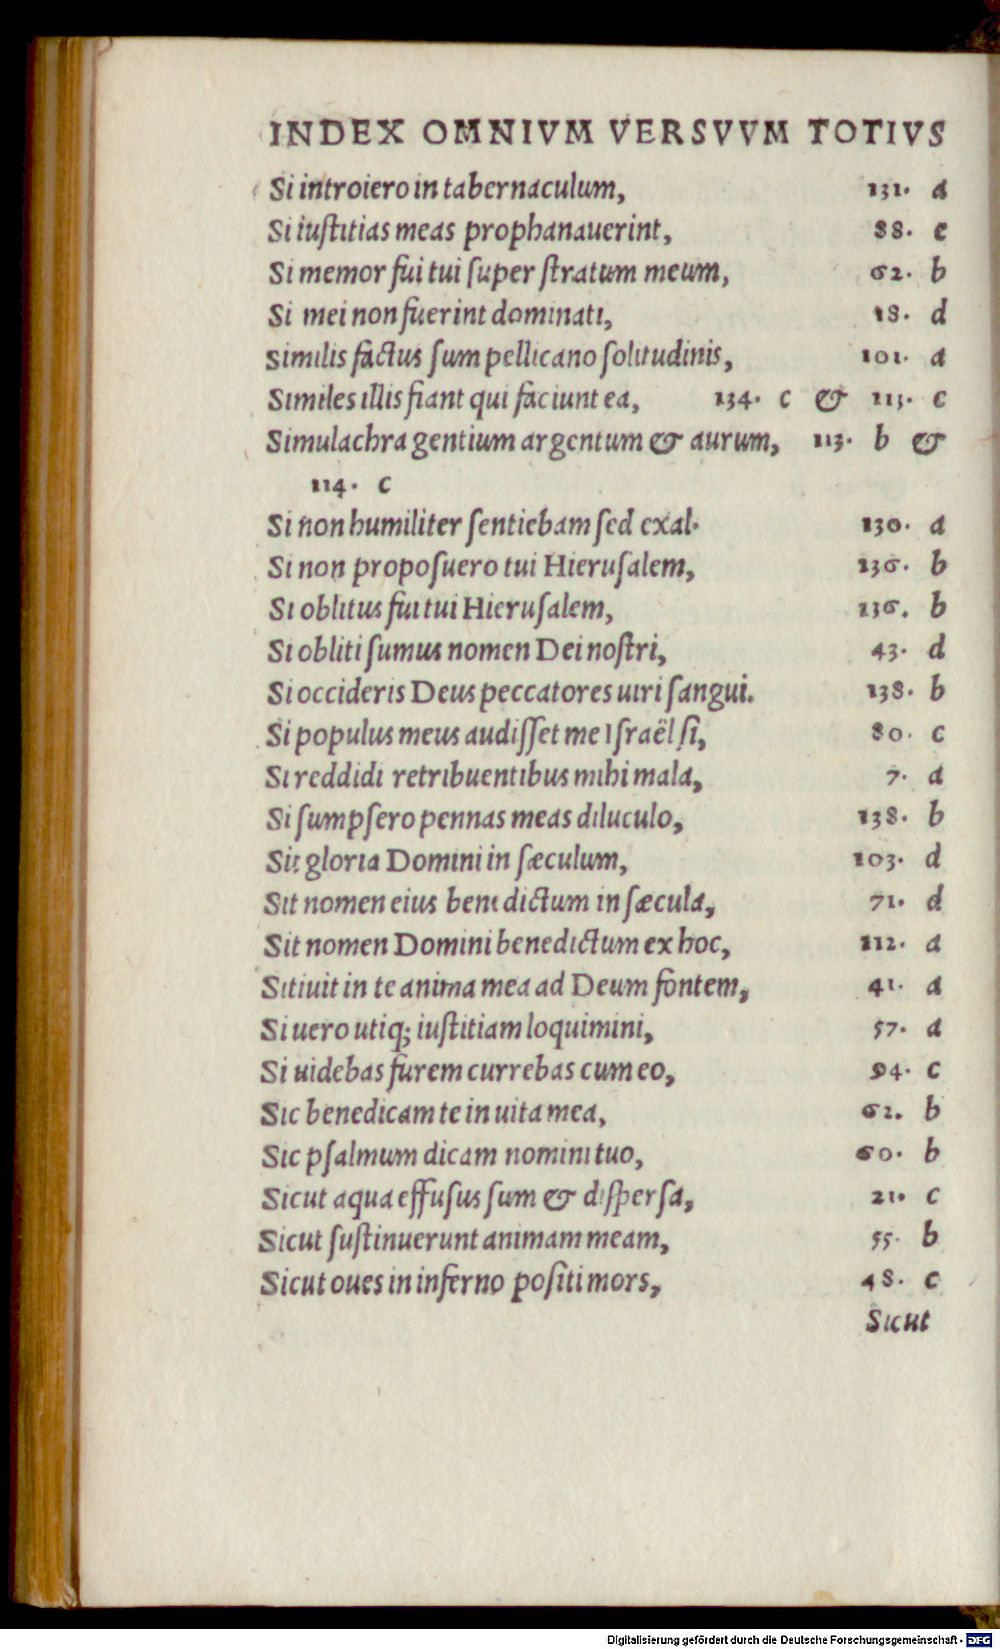 INDEX OMNIVM VERSVVM TOTIVS
Si introiero in tabernaculum, 131. a
Si iuſtitias meas prophanauerint, 88. e
Si memor fui tui ſuper ſtratum meum, 62. b
Si mei non fuerint dominati, 18. d
Similis factus ſum pellicano ſolitudinis, 101. a
Similes illis fiant qui faciunt ea, 134. c & 113. c
Simulachra gentium argentum & aurum, 113. b &
114. c
Si non humiliter ſentiebam ſed exal. 130. a
Si non propoſuero tui Hieruſalem, 136. b
Si oblitus fui tui Hieruſalem, 136. b
Si obliti ſumus nomen Dei noſtri, 43. d
Si occideris Deus peccatores uiri ſangui. 138. b
Si populus meus audiſſet me Iſraël ſi, 80. c
Si reddidi retribuentibus mihi mala, 7. a
Si ſumpſero pennas meas diluculo, 138. b
Sit gloria Domini in ſæculum, 103. d
Sit nomen eius benedictum in ſæcula, 71. d
Sit nomen Domini benedictum ex hoc, 112. a
Sitiuit in te anima mea ad Deum fontem, 41. a
Si uero utiq; iuſtitiam loquimini, 57. a
Si uidebas furem currebas cum eo, 94. c
Sic benedicam te in uita mea, 62. b
Sic pſalmum dicam nomini tuo, 60. b
Sicut aqua effuſus ſum & diſperſa, 21. c
Sicut ſuſtinuerunt animam meam, 55. b
Sicut oues in inferno poſiti mors, 48. c
Sicut
Digitalisierung gefördert durch die Deutsche Forschungsgemeinschaft - DFG